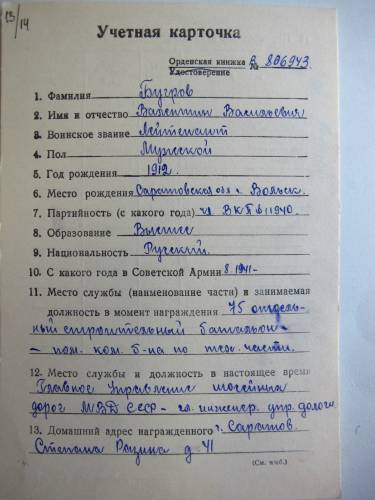 13/14
Учетная карточка
Орденская книжка В № 806943.
Удостоверение
1. Фамилия Бугров
2. Имя и отчество Валентин Васильевич
3. Воинское звание Лейтенант
4. Пол Мужской
5. Год рождения 1912.
6. Место рождения Саратовская обл г. Вольск.
7. Партийность (с какого года) чл. ВКПб 1940.
8. Образование Высшее
9. Национальность Русский.
10. С какого года в Советской Армии 8.1941-
11. Место службы (наименование части) и занимаемая
должность в момент награждения 75 отдель-
ный строительный батальон-
- пом. ком. б-на по тех. части.
12. Место службы и должность в настоящее время
Главное Управление шоссейных
дорог МВД СССР - гл. инженер. упр. дороги
13. Домашний адрес награжденного г. Саратов.
Степана Разина д 41
(См. на об.)